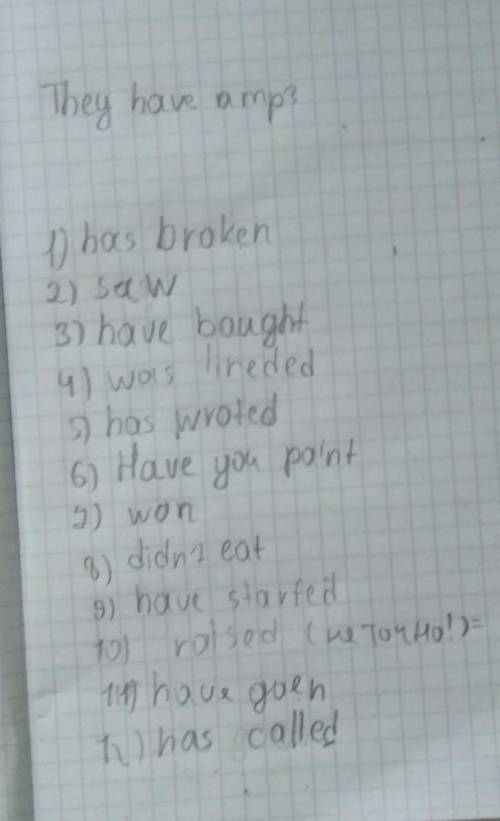 They have a mp3
1) has broken
2) saw
3) have bought
4) was tireded
5) has wroted
6) Have you paint
7) won
8) didn't eat
9) have started
10) raised (не точно!)=
11) have goen
12) has called